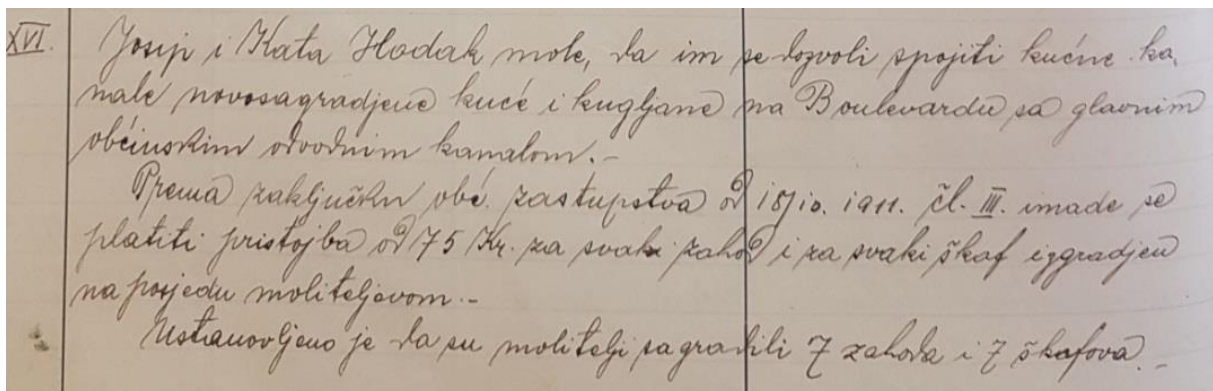 XVI. Josip i Kata Hodak mole, da im se dozvoli spojiti kućne ka,
nale novosagradjene kuće i kugljane na Boulevardu sa glavnim
občinskim odvodnim kanalom.-
Prema zaključku obć. zastupstva od 18/10. 1911. čl. III. imade se
platiti pristojba od 75 Kr. za svaki zahod i za svaki škaf izgradjen
na posjedu moliteljevom.-
Ustanovljeno je da su molitelji sagradili 7 zahoda i 7 škafova.-